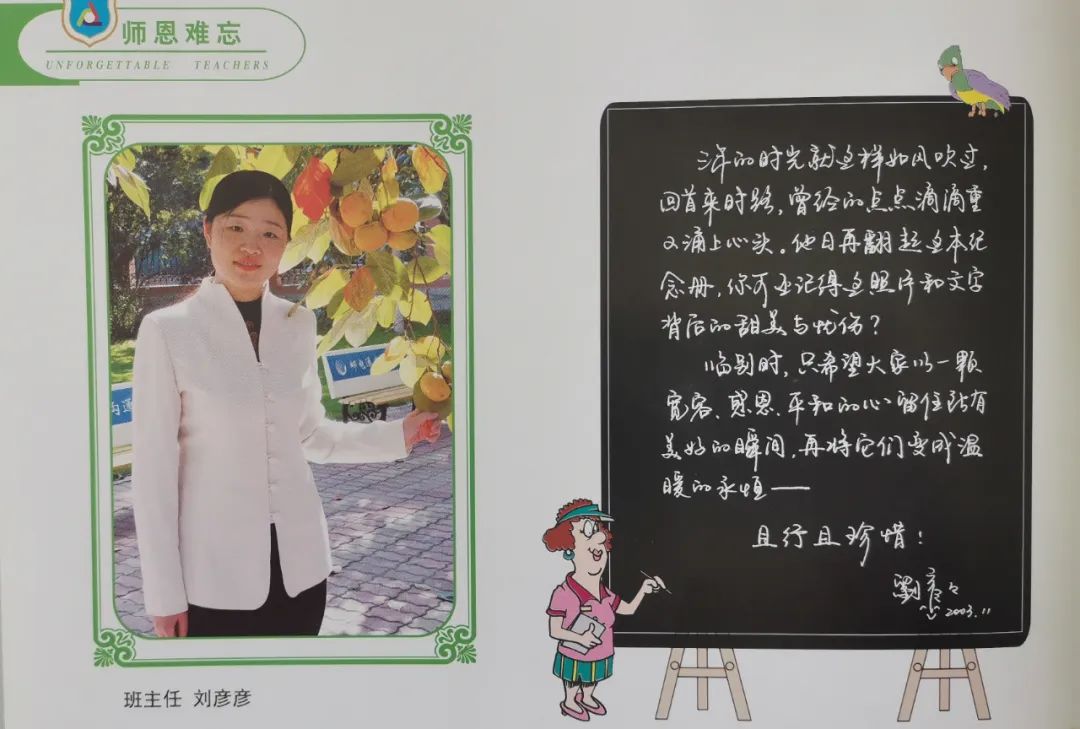 师恩难忘
UNFORGETTABLE TEACHERS
沟通
班主任 刘彦彦
三年的时光就这样如风吹过，
回首来时路，曾经的点点滴滴重
又涌上心头。他日再翻起这本纪
念册，你可还记得这照片和文字
背后的甜美与忧伤？
临别时，只希望大家以一颗
宽容、感恩、平和的心留住所有
美好的瞬间，再将它们变成温
暖的永恒——
且行且珍惜！
劉彦彦
2003.11